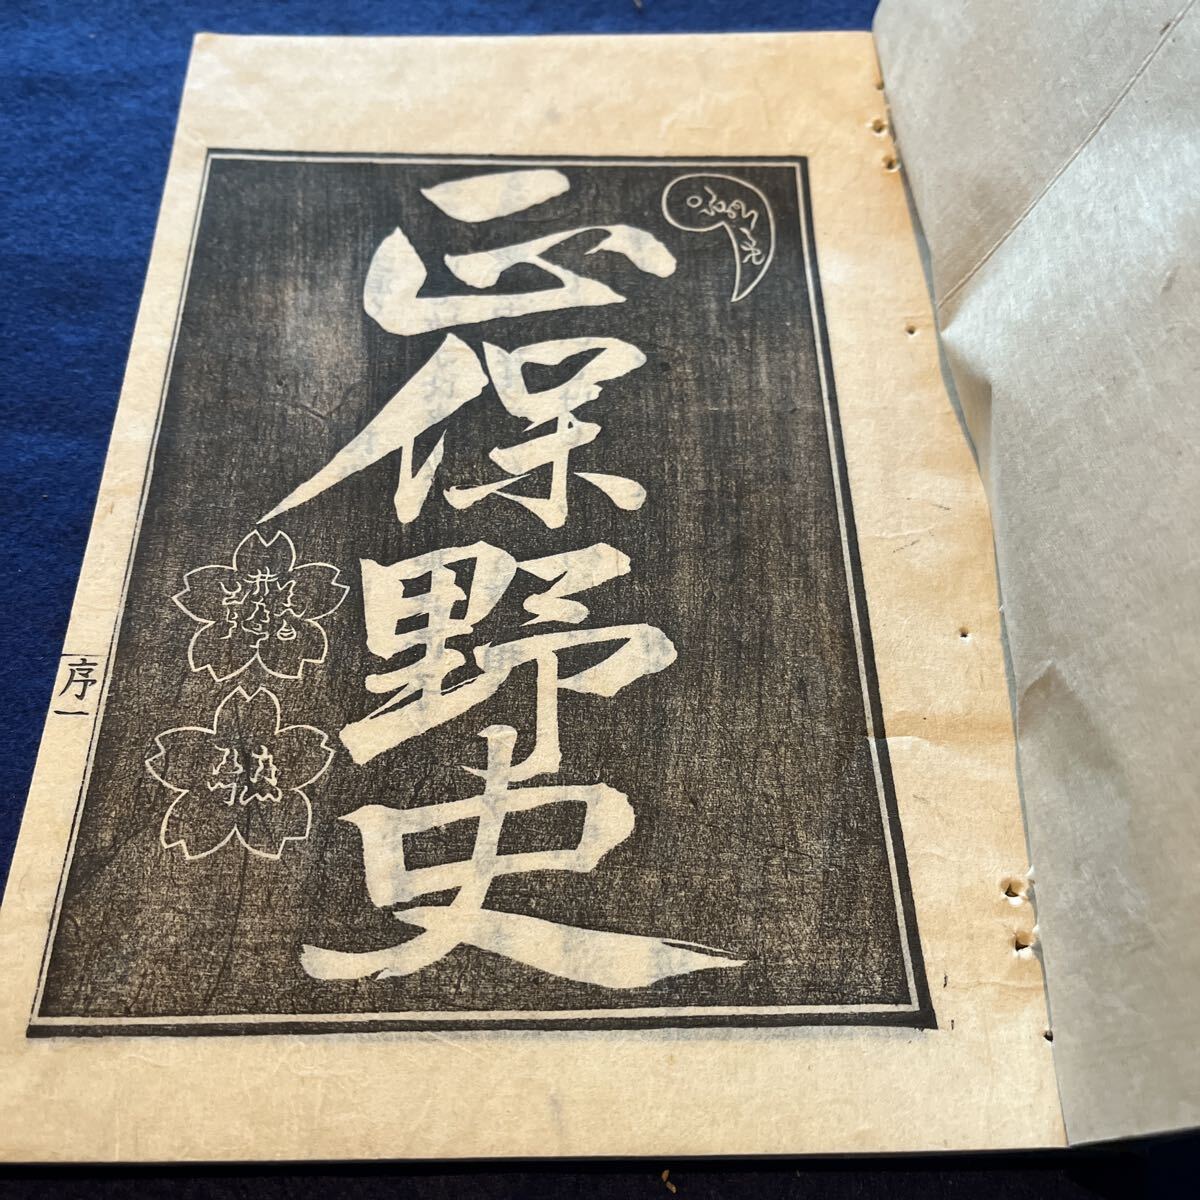 正保野史
序一